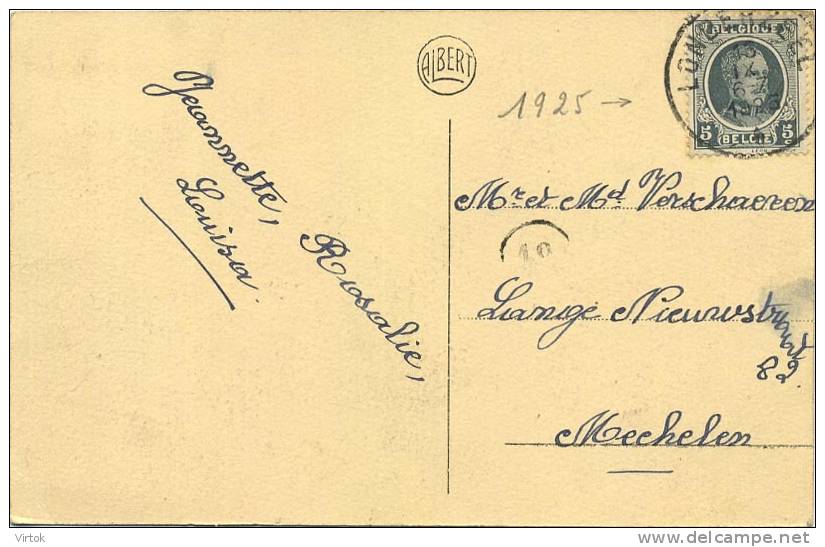 ALBERT
1925 →
LONDERZEEL
BELGIQUE
5 5
BELGIË
Jeannette,
Louisa.
Rosalie,
Mr et Md Verschaeren
10
Lange Nieuwstraat
82
Mechelen
Virtok
www.delcampe.net